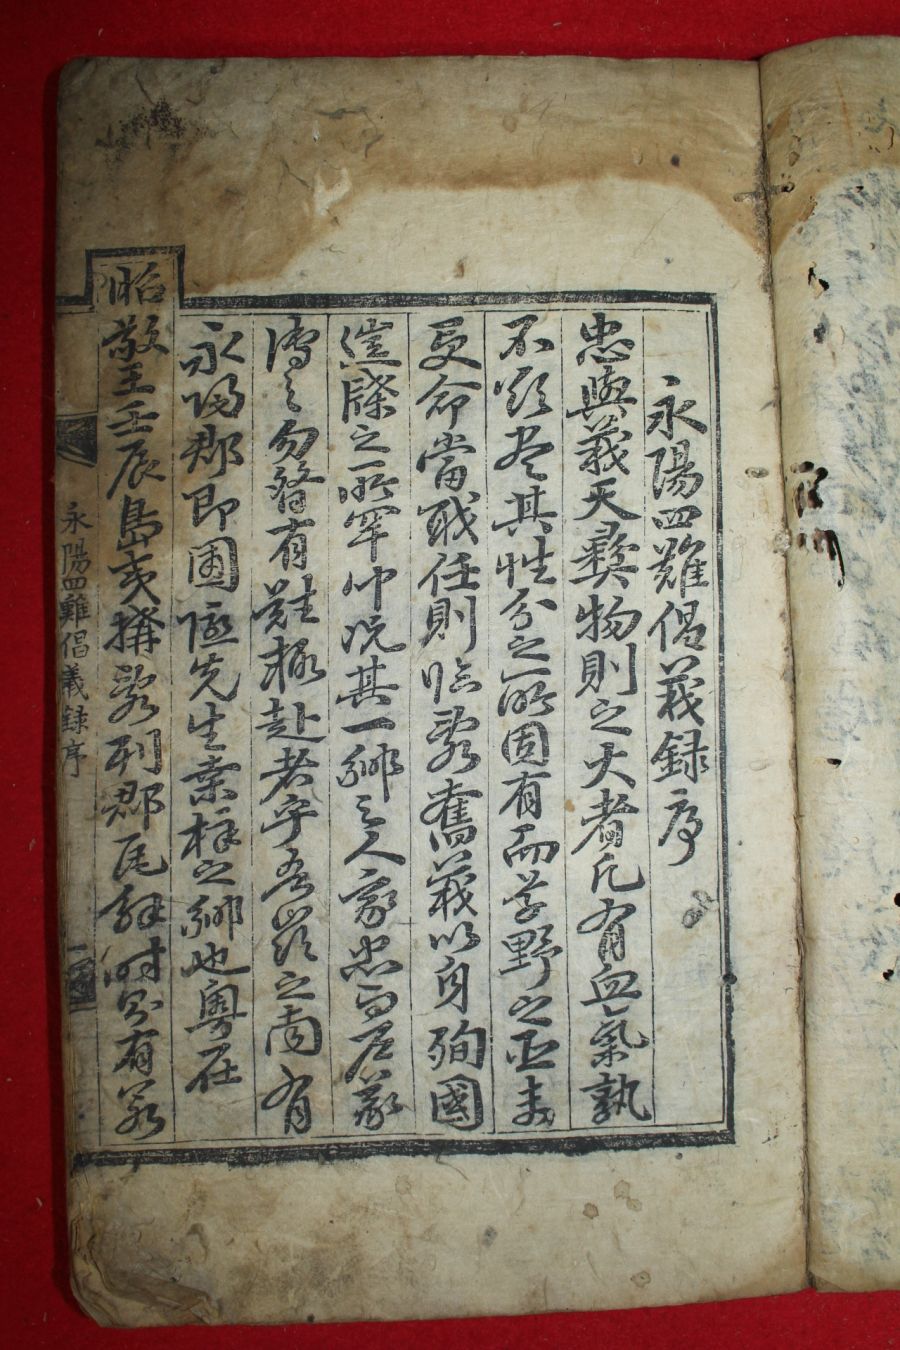 永陽四難倡義録序
忠與義天彜物則之大者凡有血氣孰
不欲盡其性分之所固有而草野之臣未
受命當戰任則臨亂奮義以身殉國
進牒之所罕仲况其一鄉之人家忠而戶義
傳之勿替有難輒赴者乎吾嶺之南有
永陽郡即圃隱先生桑梓之鄉也粤在
昭敬王壬辰島夷搆亂列郡瓦解時則有若
永陽四難倡義録序